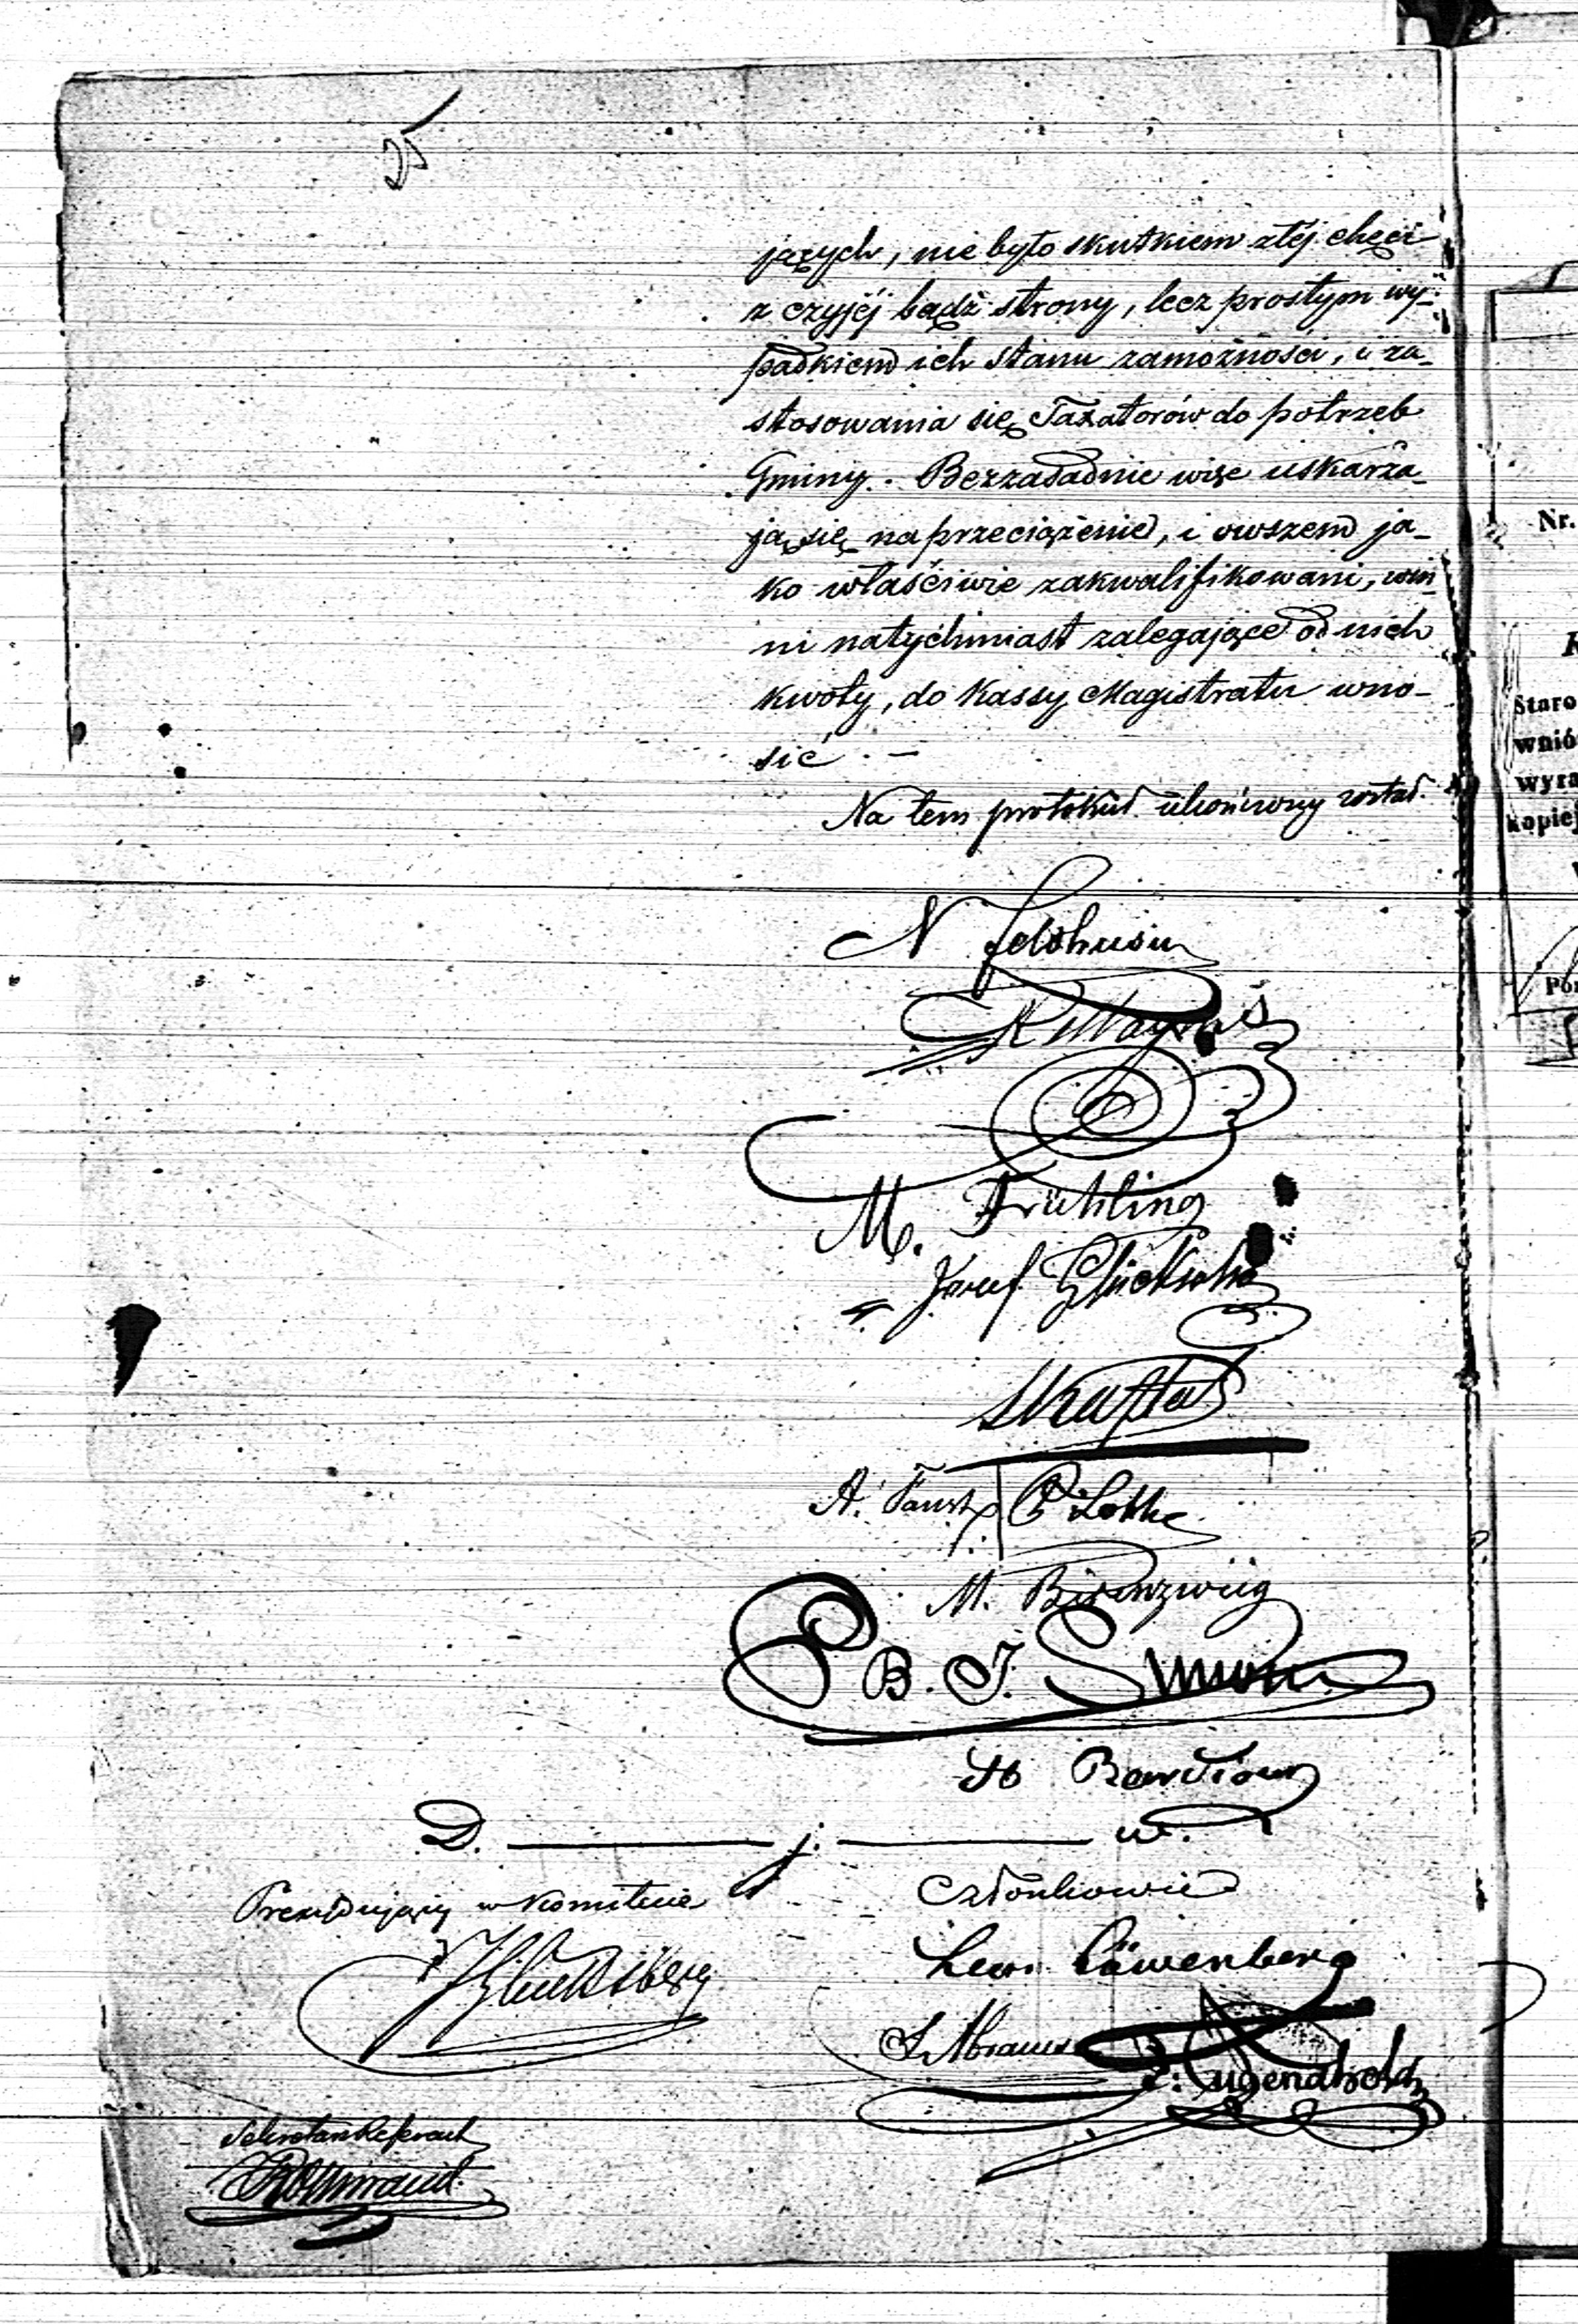 25
jących, nie było skutkiem złéj chęci
z czyjéj bądź strony, lecz prostym wy-
padkiem ich stanu zamożności, i za-
stosowania się Taxatorów do potrzeb
Gminy. Bezzasadnie więc uskarża-
ją się na przeciążenie, i owszem ja-
ko właściwie zakwalifikowani, win-
ni natychmiast zalegające od nich
kwoty, do Kassy Magistratu wno-
sić. —
Na tem protokuł ukończony został.
N
M. Frühling
Józef Glücksohn
A. Faust
M. Birenzweig
B. J. Simon
D. — j. — w.
Prezydujący w Komitecie
Członkowie
Lewi Löwenberg
J. Glücksberg
J. Abrams
J. Tugendhold
Sekretarz Referent
Nr.
Staro
wnió
wyra
kopiej